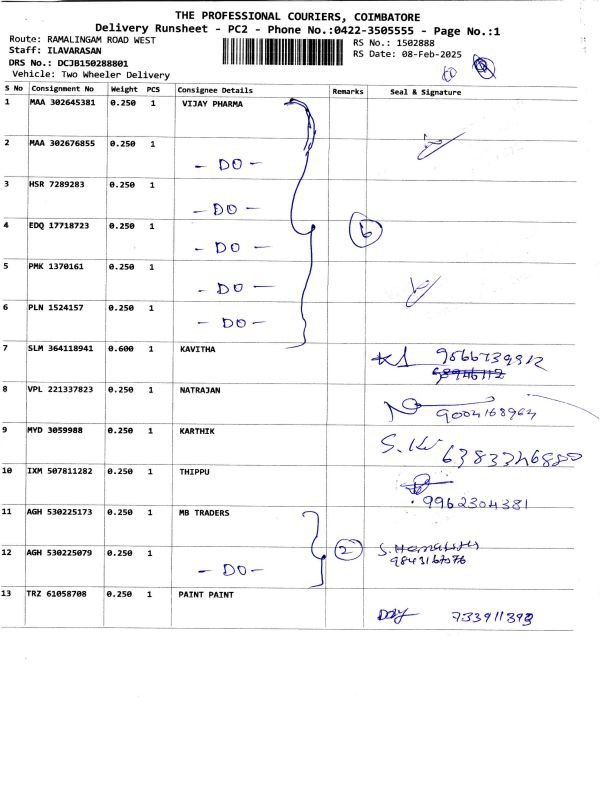 THE PROFESSIONAL COURIERS, COIMBATORE
Delivery Runsheet - PC2 - Phone No.:0422-3505555 - Page No.:1
Route: RAMALINGAM ROAD WEST
RS No.: 1502888
Staff: ILAVARASAN
RS Date: 08-Feb-2025
DRS No.: DCJB150288801
Vehicle: Two Wheeler Delivery
S No Consignment No Weight PCS Consignee Details Remarks Seal & Signature
1 MAA 302645381 0.250 1 VIJAY PHARMA
2 MAA 302676855 0.250 1
- DO -
3 HSR 7289283 0.250 1
- DO -
4 EDQ 17718723 0.250 1 6
- DO -
5 PMK 1370161 0.250 1
- DO -
6 PLN 1524157 0.250 1
- DO -
7 SLM 364118941 0.600 1 KAVITHA
8 VPL 221337823 0.250 1 NATRAJAN
9004168964
9 MYD 3059988 0.250 1 KARTHIK
6383326880
10 IXM 507811282 0.250 1 THIPPU
9962304381
11 AGH 530225173 0.250 1 MB TRADERS
12 AGH 530225079 0.250 1 2
9843167076
- DO -
13 TRZ 61058708 0.250 1 PAINT PAINT